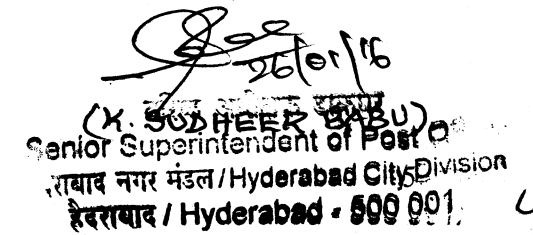 26/01/16
(K. SUDHEER BABU)
Senior Superintendent of Post O
राबाद नगर मंडल / Hyderabad City Division
हैदराबाद / Hyderabad - 500 001.